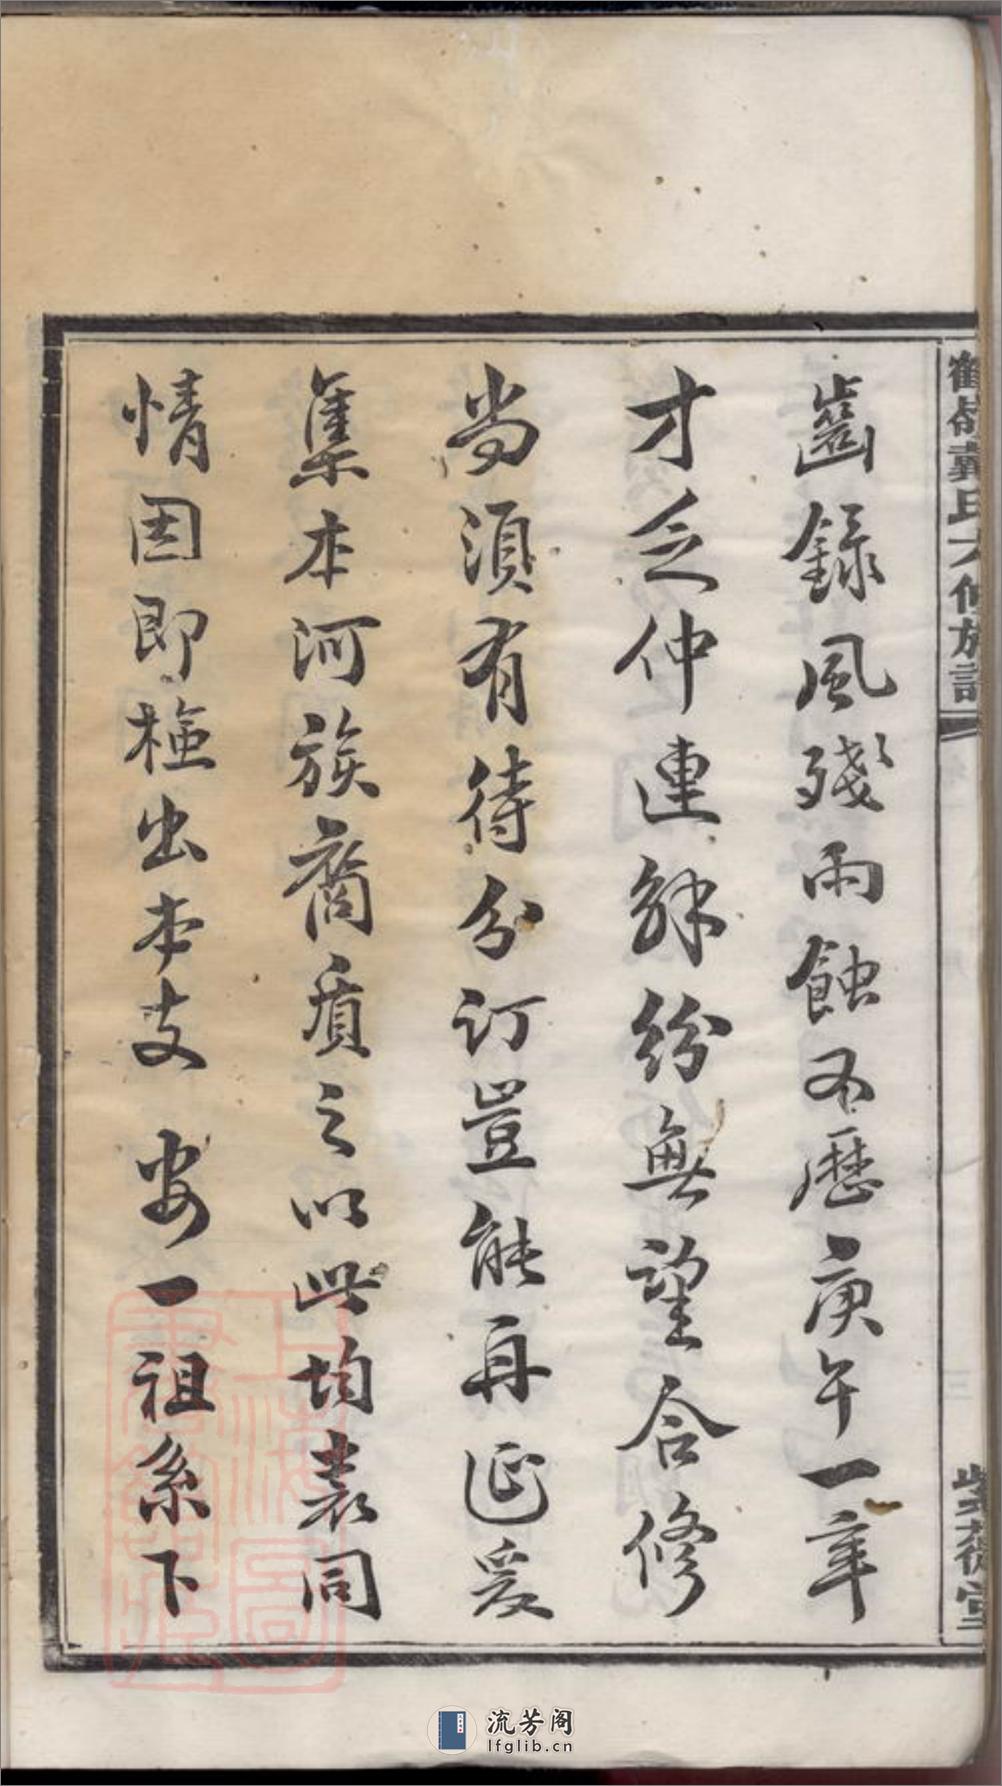 鶴嶺戴氏六修族譜
紫薇堂
齒錄風殘雨蝕不歷庚午一年
才乏仲連解紛無望合修
尚須有待分訂豈能再延爰
集本河族裔質之以此均表同
情因即檢出本支安一祖系下
上海圖書館藏
流芳阁
lfglib.cn